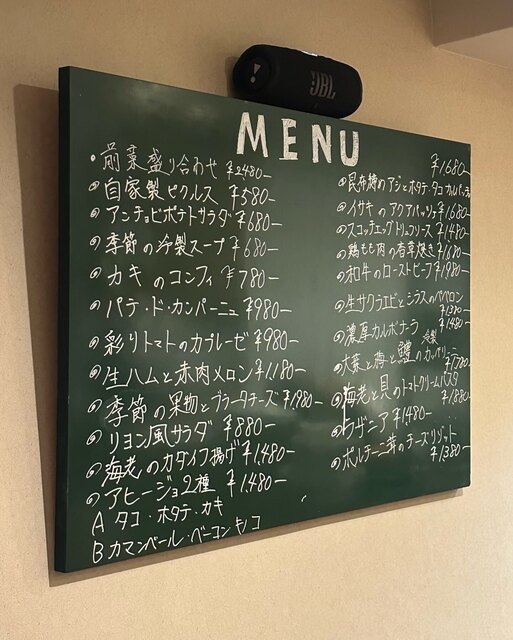 JBL
MENU
・前菜盛り合わせ ¥2480-
自家製ピクルス ¥580-
アンチョビポテトサラダ ¥680-
季節の冷製スープ ¥680-
カキのコンフィ ¥780-
パテ・ド・カンパーニュ ¥980-
彩りトマトのカプレーゼ ¥980-
生ハムと赤肉メロン ¥1,180-
季節の果物とブラータチーズ ¥1,980-
リヨン風サラダ ¥880-
海老のカダイフ揚げ ¥1,480-
アヒージョ2種 ¥1,480-
A タコ・ホタテ・カキ
B カマンベール・ベーコン キノコ
¥1,680-
昆布締めアジとホタテ・タコ カルパッチョ
イサキのアクアパッツァ ¥1,680-
スコッチエッグトリュフソース ¥1,480-
鶏もも肉の香草焼き ¥1,680-
和牛のローストビーフ ¥1,980-
生サクラエビとシラスのペペロン
¥1,380-
濃厚カルボナーラ ¥1,480-
冷製
大葉と と鱧のカッペリーニ
¥1,780-
海老と貝のトマトクリームパスタ
¥1,880-
ラザニア ¥1,480-
ポルチーニ茸のチーズリゾット
¥1,380-